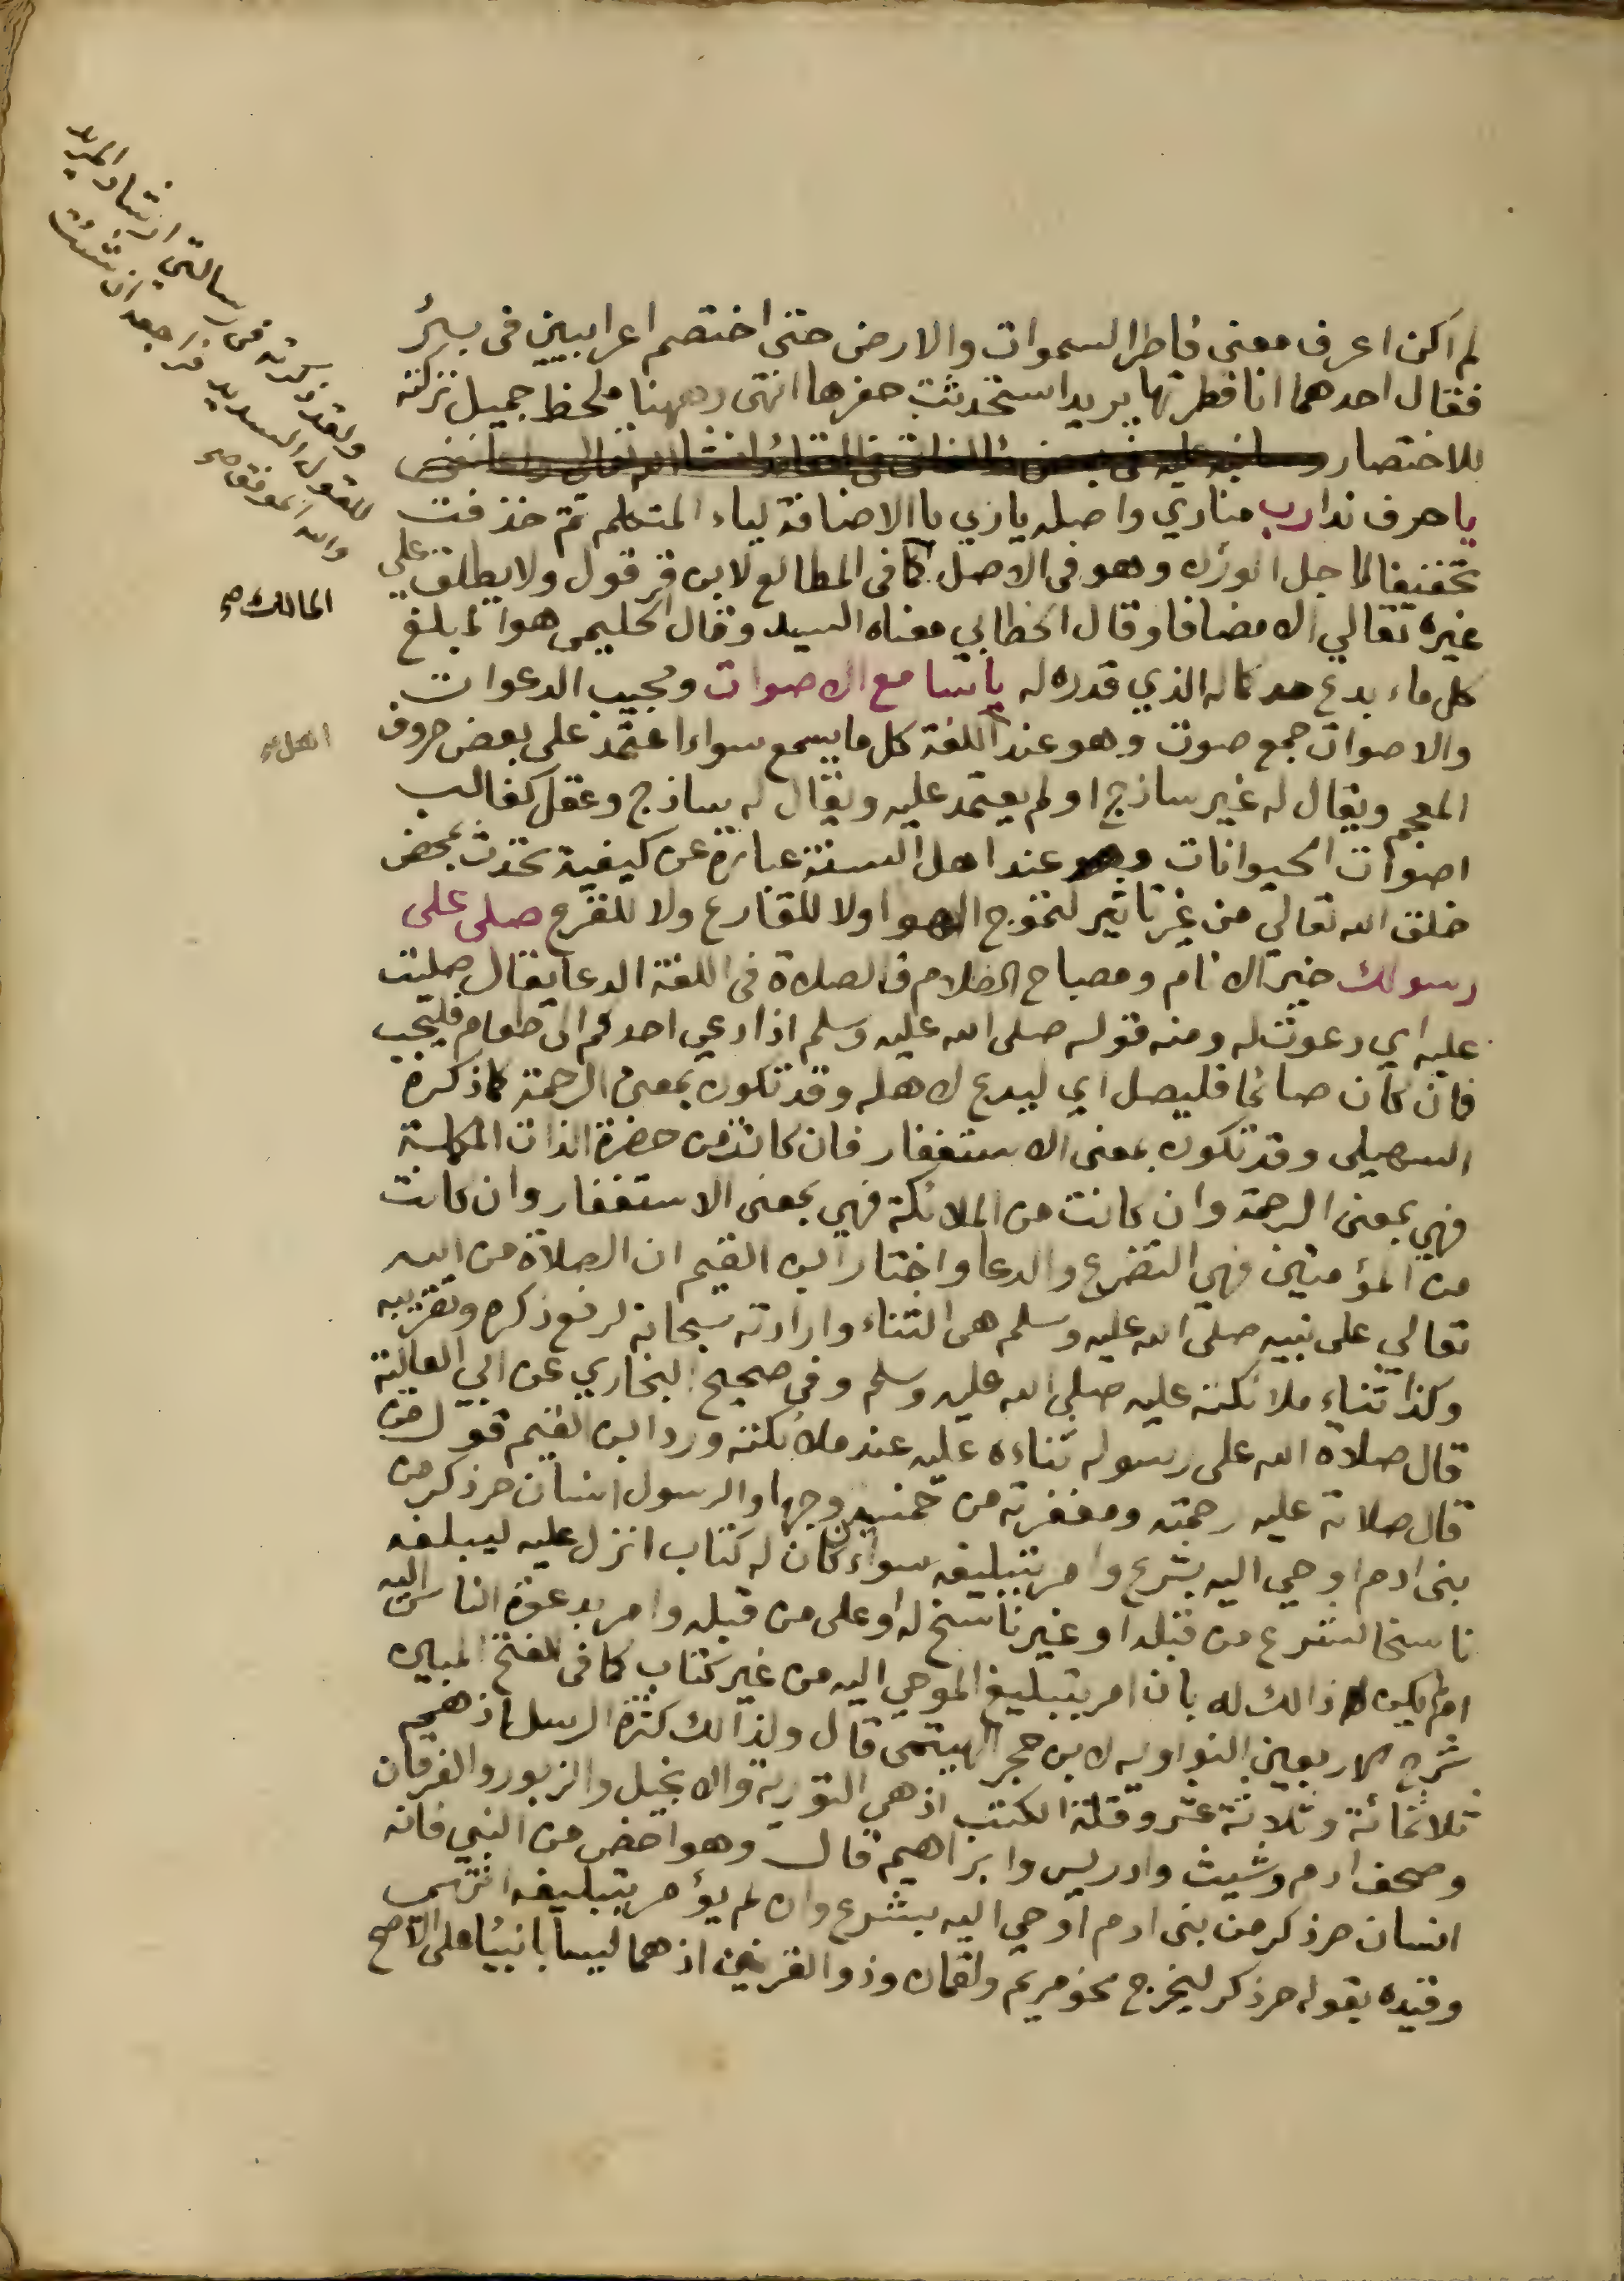 لم اكن اعرف معنى فاطر السموات والارض حتى اختصم اعرابيين في بئر
فقال احدهما انا فطرتها يريد استحدثت حفرها انتهى وههنا ملحظ جميل تركته
للاختصار
يا حرف ندا رب منادي واصله يا ربي بالاضافة لياء المتكلم ثم حذفت
تخفيفا لاجل الوزن وهو في الاصل كما في المطالع لابن قرقول ولا يطلق على
غيره تعالي الا مضافا وقال الخطابي معناه السيد وقال الحليمي هو المبلغ
كل ما ابدع حد كماله الذي قدره له يا سامع الاصوات ومجيب الدعوات
والاصوات جمع صوت وهو عند اللغة كل ما يسمع سواء اعتمد على بعض حروف
المعجم ويقال له غير ساذج او لم يعتمد عليه ويقال له ساذج وعقل كغالب
اصوات الحيوانات وهو عند اهل السنة عبارة عن كيفية تحدث بمحض
خلق الله تعالي من غير تاثير لتموج الهوا ولا للقارع ولا للقرع صلى على
رسولك خير الانام ومصباح الظلام فالصلاة في اللغة الدعا يقال صليت
عليه اي دعوت له ومنه قوله صلى الله عليه وسلم اذا دعي احدكم الى طعام فليجب
فان كان صائما فليصل اي ليدع لاهله وقد تكون بمعنى الرحمة كما ذكره
السهيلي وقد تكون بمعنى الاستغفار فان كانت من حضرة الذات المكلسة
فهي بمعنى الرحمة وان كانت من الملائكة فهي بمعنى الاستغفار وان كانت
من المؤمنين فهي التضرع والدعا واختار ابن القيم ان الصلاة من الله
تعالي على نبيه صلى الله عليه وسلم هي الثناء وارادته سبحانه لرفع ذكره وتقريبه
وكذا ثناء ملائكته عليه صلى الله عليه وسلم وفي صحيح البخاري عن ابي العالية
قال صلاة الله على رسوله ثناءه عليه عند ملائكته ورد ابن القيم قول من
قال صلاته عليه رحمته ومغفرته من خمسين وجها والرسول انسان حر ذكر من
بني ادم اوحي اليه بشرع وامر بتبليغه سواء كان له كتاب انزل عليه ليبلغه
ناسخا لشرع من قبله او غير ناسخ له او على من قبله وامر بدعوة الناس اليه
او لم يكن ذالك له بان امر بتبليغ الموحي اليه من غير كتاب كما في الفتح المبين
شرح الاربعين النواويه لابن حجر الهيتمي قال ولذالك كثرة الرسل اذ هم
ثلاثمائة وثلاثة عشر وقلة الكتب اذ هي التورية والانجيل والزبور والفرقان
وصحف ادم وشيث وادريس وابراهيم قال وهو اخص من النبي فانه
انسان حر ذكر من بني ادم اوحي اليه بشرع وان لم يؤمر بتبليغه انتهى
وقيده بقوله حر ذكر ليخرج نحو مريم ولقمان وذو القرنين اذ هما ليسا بانبيئا على الاصح
ولقد ذكرته في رسالتي ارشاد المريد
للقول السديد فراجعه ان شئت
والله الموفق صح
المالك صح
اهل صح